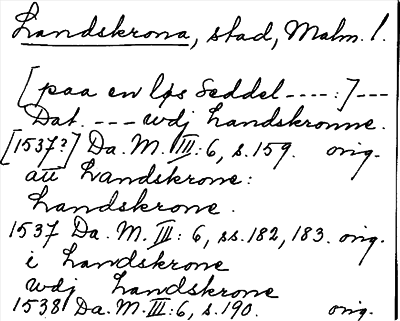 Landskrona, stad, Malm. l.
[paa en løs Seddel ----:]---
Dat. --- wdj Landskronne.
[1537?] Da. M. III: 6, s. 159. orig.
au Landskrone:
Landskrone.
1537 Da. M. III: 6, ss. 182, 183. orig.
i Landskrone
wdj Landskrone
1538 Da. M. III: 6, s. 190. orig.